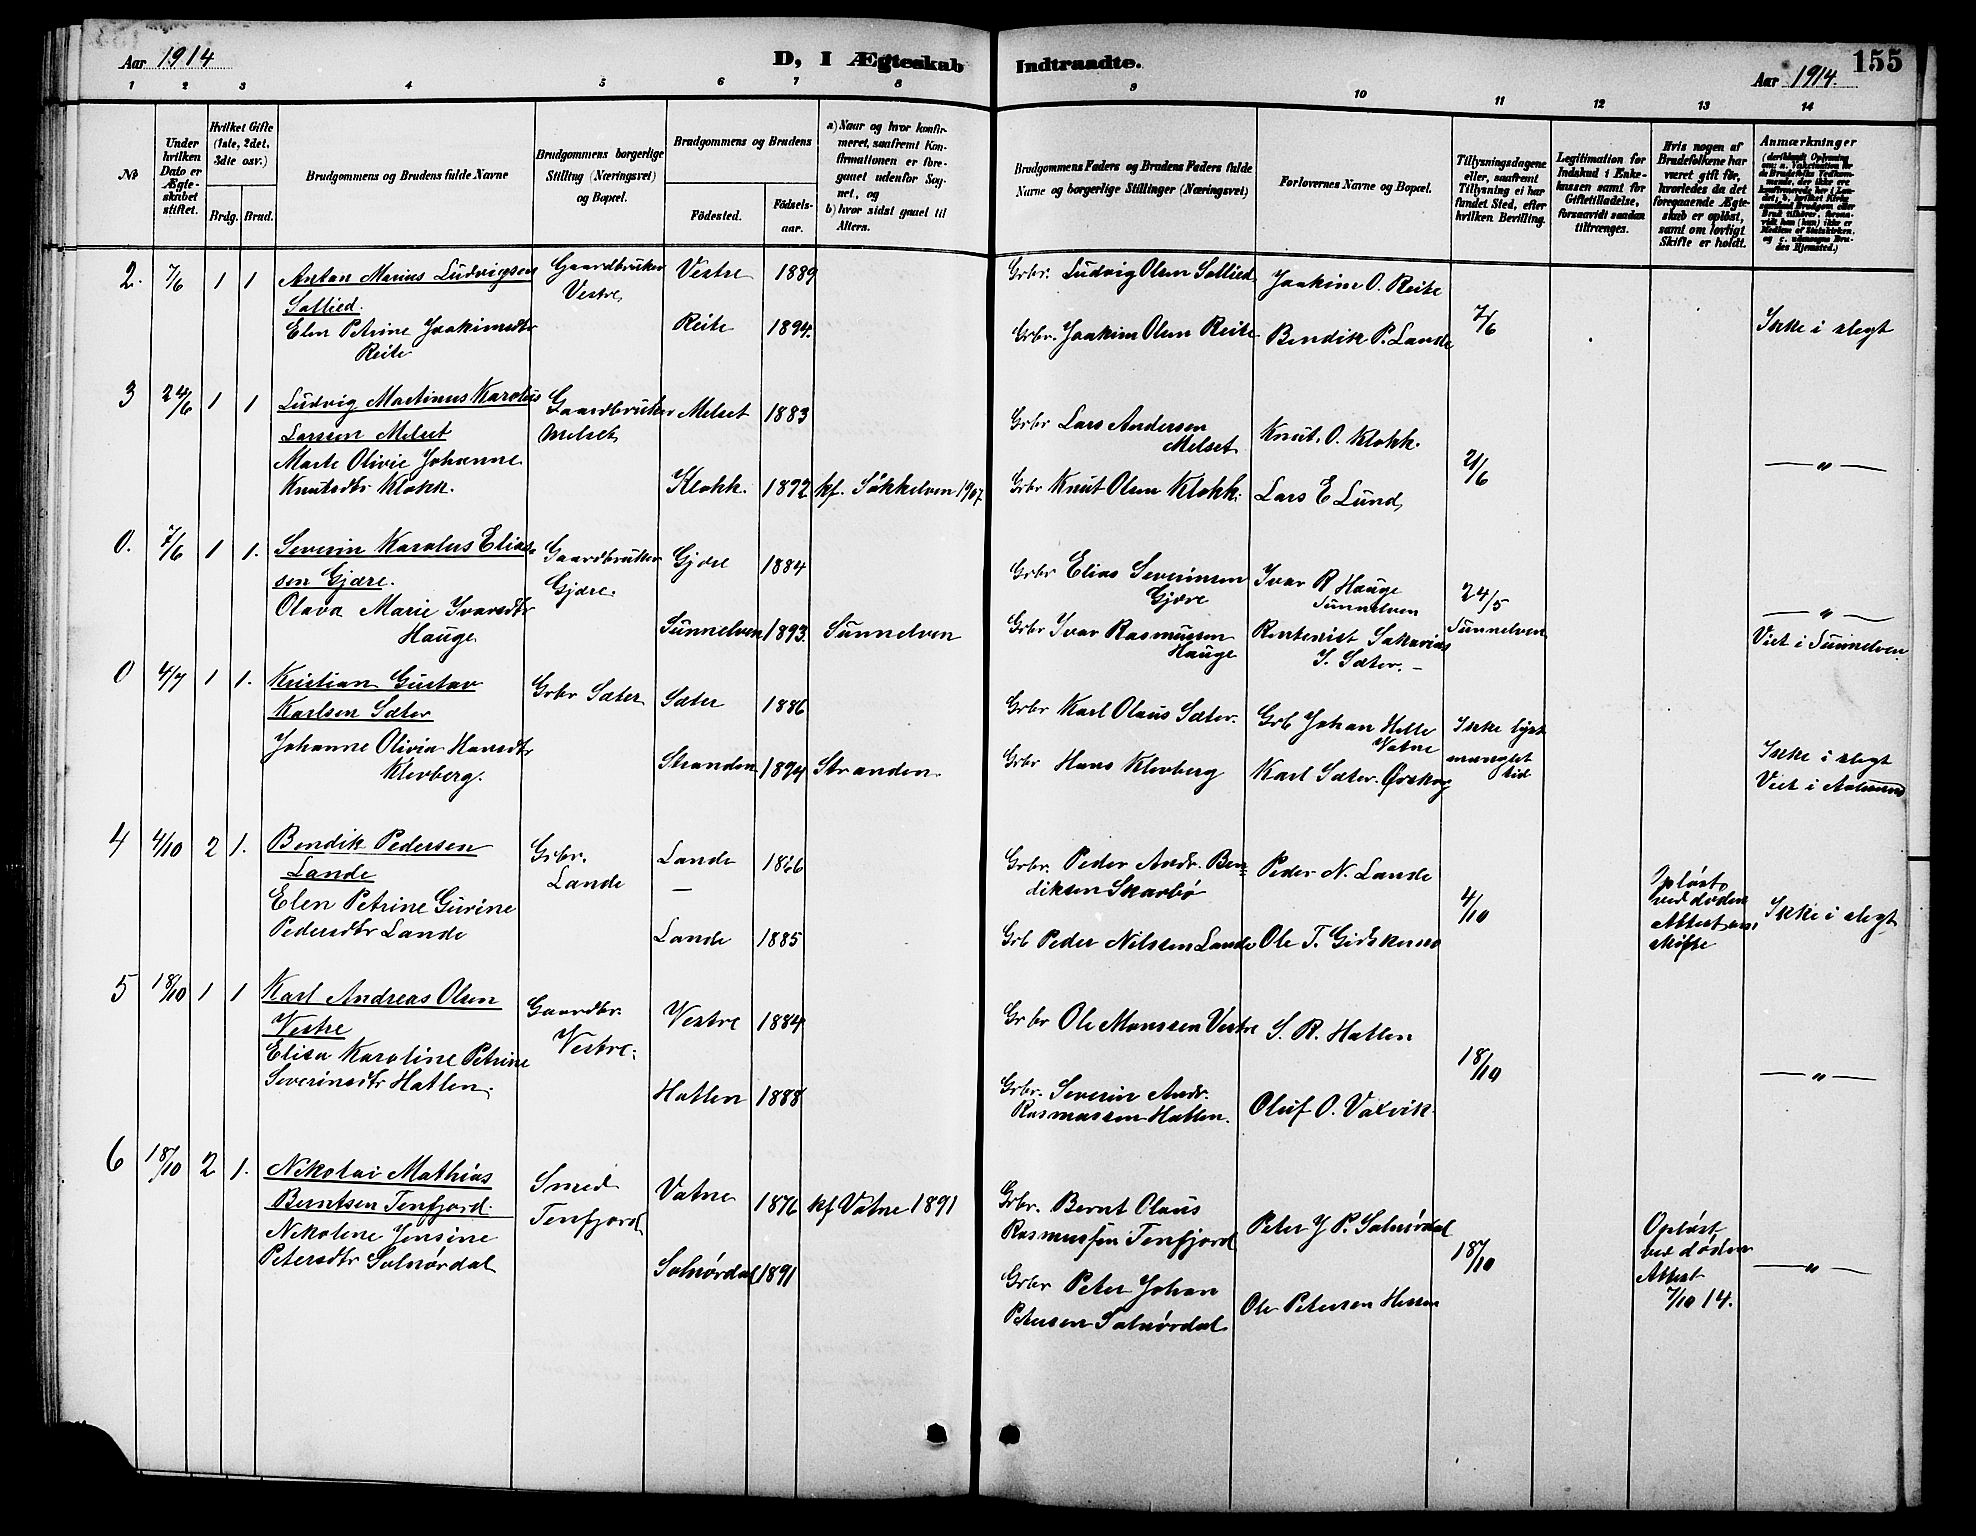 Aar 1914
D, I Ægteskab
Indtraadte.
Aar 1914.
155
1 2 3 4 5 6 7 8 9 10 11 12 13 14
No
Under
hvilken
Dato er
Ægte-
skabet
stiftet.
Hvilket Gifte
(1ste, 2det,
3die osv.)
Brdg. Brud.
Brudgommens og Brudens fulde Navne
Brudgommens borgerlige
Stilling (Næringsvei)
og Bopæl.
Brudgommens og Brudens
Födested.
Födsels-
aar.
a) Naar og hvor konfir-
meret, saafremt Kon-
firmationen er fore-
gaaet udenfor Sog-
net, og
b) hvor sidst gaaet til
Alters.
Brudgommens Faders og Brudens Faders fulde
Navne og borgerlige Stillinger (Næringsvei)
Forlovernes Navne og Bopæl.
Tillysningsdagene
eller, saafremt
Tillysning ei har
fundet Sted, efter
hvilken Bevilling.
Legitimation for
Indskud i Enke-
kassen samt for
Giftetilladelse,
forsaavidt saadan
tiltrænges.
Hvis nogen af
Brudefolkene har
været gift før,
hvorledes da det
foregaaende Ægte-
skab er opløst,
samt om lovligt
Skifte er holdt.
Anmærkninger
2. 7/6 1 1 Anton Marius Ludvigsen
Sollied.
Elen Petrine Joakimsdtr
Reite
Gaardbruker
Vestre
Vestre 1889
Reite 1894.
Grbr. Ludvig Olsen Sollied
Grbr. Joakim Olsen Reite
Joakim O. Reite
Bendik P. Lande
7/6
Ikke i slegt
3 24/6 1 1 Ludvig Martinus Karolus
Larssen Melset
Marte Olivie Johanne
Knutsdtr Klokk.
Gaardbruker
Melset
Melset 1883
Klokk. 1892 kf. Søkkelven 1907.
Grbr Lars Andersen
Melset
Grbr Knut Olsen Klokk.
Knut. O. Klokk.
Lars E Lund
21/6
— " —
0. 7/6 1 1. Severin Karolus Elias-
sen Gjære.
Olava Marie Ivarsdtr
Hauge.
Gaardbruker
Gjære.
Gjære 1884
Sunnelven 1893. Sunnelven
Grbr Elias Severinsen
Gjære
Grbr Ivar Rasmussen
Hauge
Ivar R Hauge
Sunnelven
Rentenist Sakarias
I. Sæter. —
24/5
Sunnelven
— " —
Viet i Sunnelven.
0 4/7 1 1. Kristian Gustav
Karlsen Sæter
Johanne Olivia Hansdtr
Klevberg.
Grbr Sæter
Sæter 1886
Stranden 1894 Stranden.
Grbr Karl Olaus Sæter.
Grbr Hans Klevberg
Grb Johan Helle
Vatne
Karl Sæter. Ørskog
Ikke lyst
manglet
tid
Ikke i slegt
Viet i Aalesund
4 4/10 2 1. Bendik Pedersen
Lande
Elen Petrine Gurine
Pedersdtr Lande
Grbr.
Lande
Lande 1866
—
Lande 1885
Grbr. Peder Andr. Ben-
diksen Skarbø
Grb Peder Nilssen Lande
Peder N. Lande
Ole T. Gidskemo
4/10
Opløst
ved døden
Attest om
skifte
Ikke i slegt
5 18/10 1 1 Karl Andreas Olsen
Vestre
Elisa Karoline Petrine
Severinsdtr Hatlen.
Gaardbr.
Vestre.
Vestre 1884
Hatlen 1888
Grbr Ole Monssen Vestre
Grbr. Severin Andr.
Rasmussen Hatlen.
S. R. Hatlen
Oluf O. Vaxvik.
18/10
— " —
6 18/10 2 1. Nikolai Mathias
Berntsen Tenfjord.
Nikoline Jensine
Petersdtr Solnørdal
Smed
Tenfjord
Vatne 1876 kf Vatne 1891
Solnørdal 1891
Grbr. Bernt Olaus
Rasmussen Tenfjord
Grbr Peter Johan
Petersen Solnørdal
Peter J P. Solnørdal
Ole Petersen Hessen
18/10
Opløst,
ved døden
Attest
7/10 14.
— " —